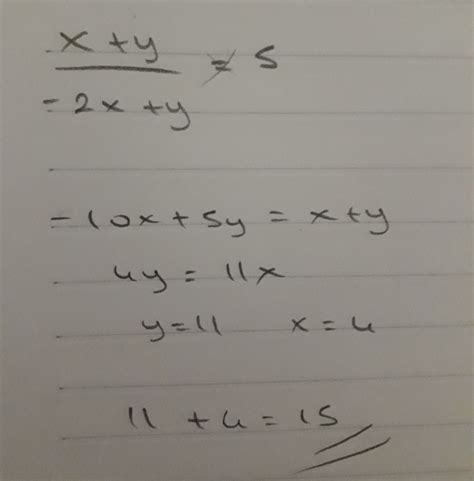 x + y
= 5
-2x + y
-10x + 5y = x + y
4y = 11x
y = 11 x = 4
11 + 4 = 15